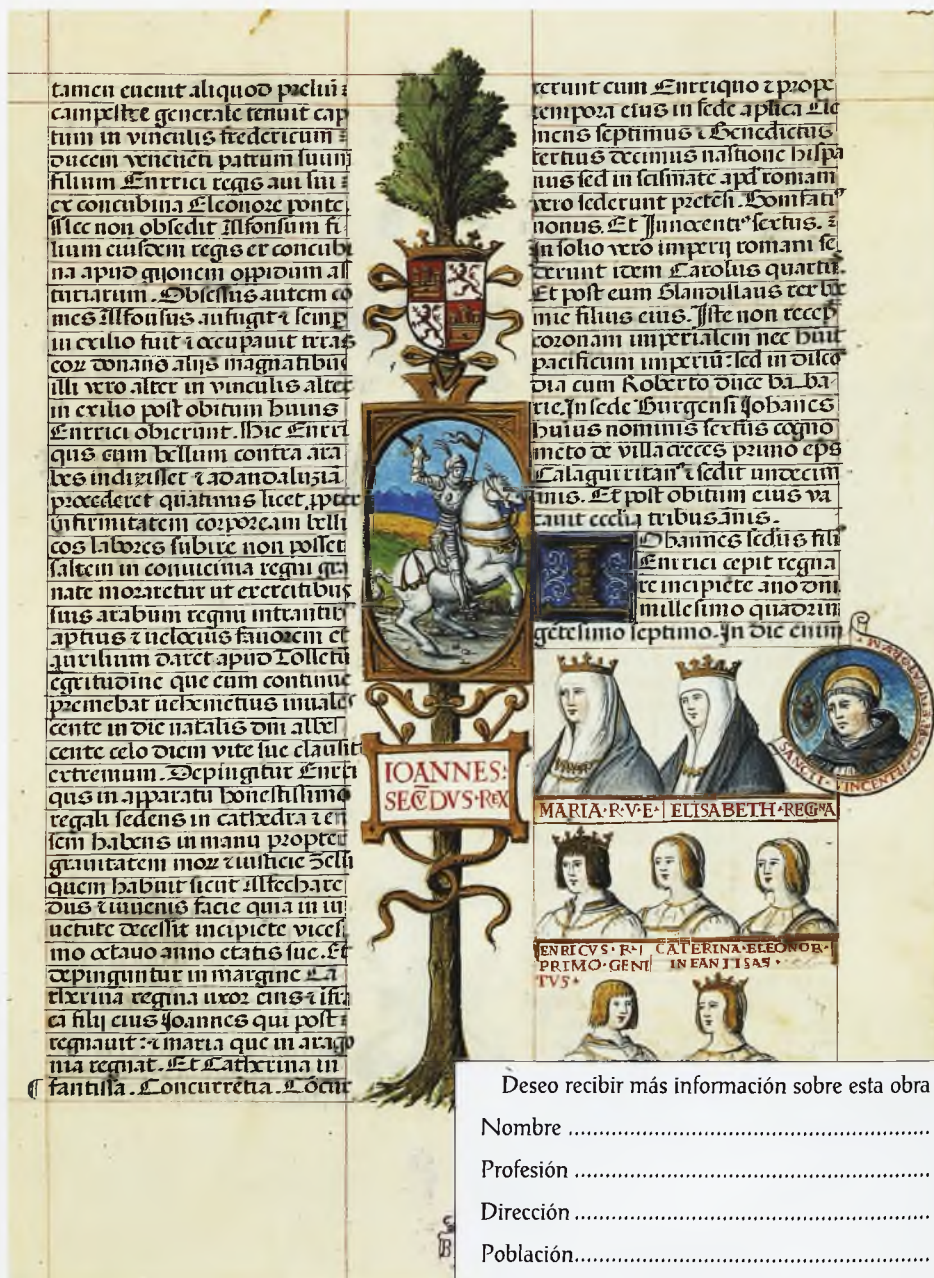 tamen euenit aliquod prelium
campestre generale tenuit cap
tum in vinculis fredericum
ducem veneuenti patrum suum
filium Enrrici regis aui sui
ex concubina Eleonore ponte
Nec non obsedit Alfonsum fi
lium eiusdem regis ex concubi
na apud gijonem oppidum as
turiarum. Obsessus autem co
mes Alfonsus aufugit ⁊ semp
in exilio fuit ⁊ occupauit terras
eoꝝ donans alijs magnatibus
illi vero alter in vinculis alter
in exilio post obitum huius
Enrrici obierunt. Hic Enrri
qus cum bellum contra ara
bes indixisset ⁊ ad andaluziã
procederet quatinus licet ꝓpter
infirmitatem corpoream belli
cos labores subire non posset
saltem in conuicinia regni gra
nate moraretur ut exercitibus
suis arabum regnū intrantib
aptius ⁊ uelocius fauorem et
auxilium daret apud Tolletū
egritudine que eum continue
premebat uehemetius inuales
cente in die natalis dn̄i albes
cente celo diem vite sue clausit
extremum. Depingitur Enrri
qus in apparatu honestissimo
regali sedens in cathedra ⁊ en
sem habens in manu propter
grauitatem moꝝ ⁊ iusticie zelū
quem habuit sicut Alfechare
dus ⁊ iuuenis facie quia in iu
uetute decessit incipiēte vicesi
mo octauo anno etatis sue. Et
depinguntur in margine Ca
therina regina uxor eius ⁊ iuxta
ea filij eius Joannes qui post
regnauit: ⁊ maria que in arago
nia regnat. Et Catherina in
fantissa. Concurrētia. Cōcur
IOANNES:
SECŪDVS·REX
rerunt cum Enrriquo ⁊ prope
tempora eius in sede aplica Cle
mens septimus ⁊ Benedictus
tertius decimus nastione hispa
nus sed in scismate apd romam
vero sederunt pretesi. Bonifati⁹
nonus. Et Innocenti⁹ sextus. ⁊
in solio vero imperij romani se
derunt idem Carolus quartus.
Et post eum Slandislaus rex boe
mie filius eius. Iste non recep
coronam imperialem nec huit
pacificum imperiū: sed in disco
dia cum Roberto duce ba.ba
rie. In sede Burgensi Johanes
huius nominis sextus cogno
mēto de villacreces primo eps
Calagurritan⁹ ⁊ sedit undecim
annis. Et post obitum eius va
cauit ecclia tribus annis.
IOhannes scdus fili
Enrrici cepit regna
re incipiēte ano dni
millesimo quadrin
getesimo septimo. In die enim
SANCTI·VINCENTII·
MARIA·R·V·E· ELISABETH·REGNA
ENRICVS·R·I CATERINA·ELEONOR·
PRIMO·GENI INFANTISAS·
TVS·
Deseo recibir más información sobre esta obra
Nombre
Profesión
Dirección
Población